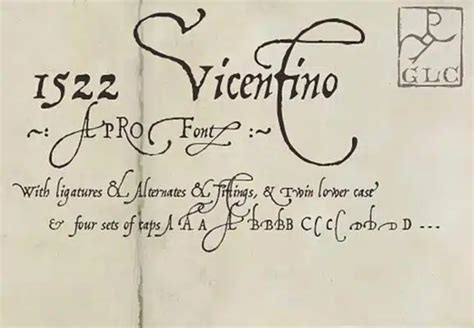 1522 Vicentino
GLC
~: A PRO Font :~
With ligatures & Alternates & Fittings, & Twin lower case
& four sets of caps A A A A B B B B C C C C D D D D ...